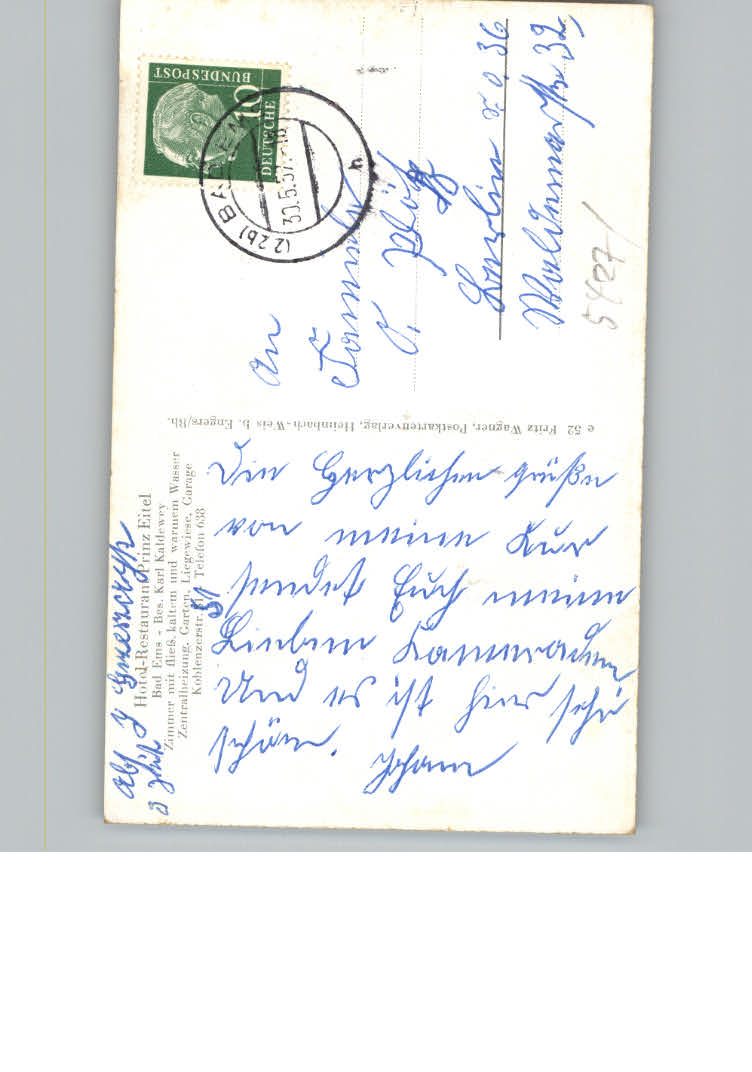 Abs J
Hotel-Restaurant Prinz Eitel
Bad Ems - Bes. Karl Kaldewey
Zimmer mit fließ. kaltem und warmem Wasser
Zentralheizung, Garten, Liegewiese, Garage
Koblenzerstr. Telefon 638
51
Die Herzlichen grüße
von meine Kur
sendet Euch meine
Lieben Kameraden
Und es ist hier sehr
schön. Johann
e 52 Fritz Wagner, Postkartenverlag, Heimbach-Weis b. Engers/Rh.
DEUTSCHE
BUNDESPOST
10
(22b) BAD EMS
30.5.57
h
An
Familie
Berlin 36
Waldemarstr 32
5427/